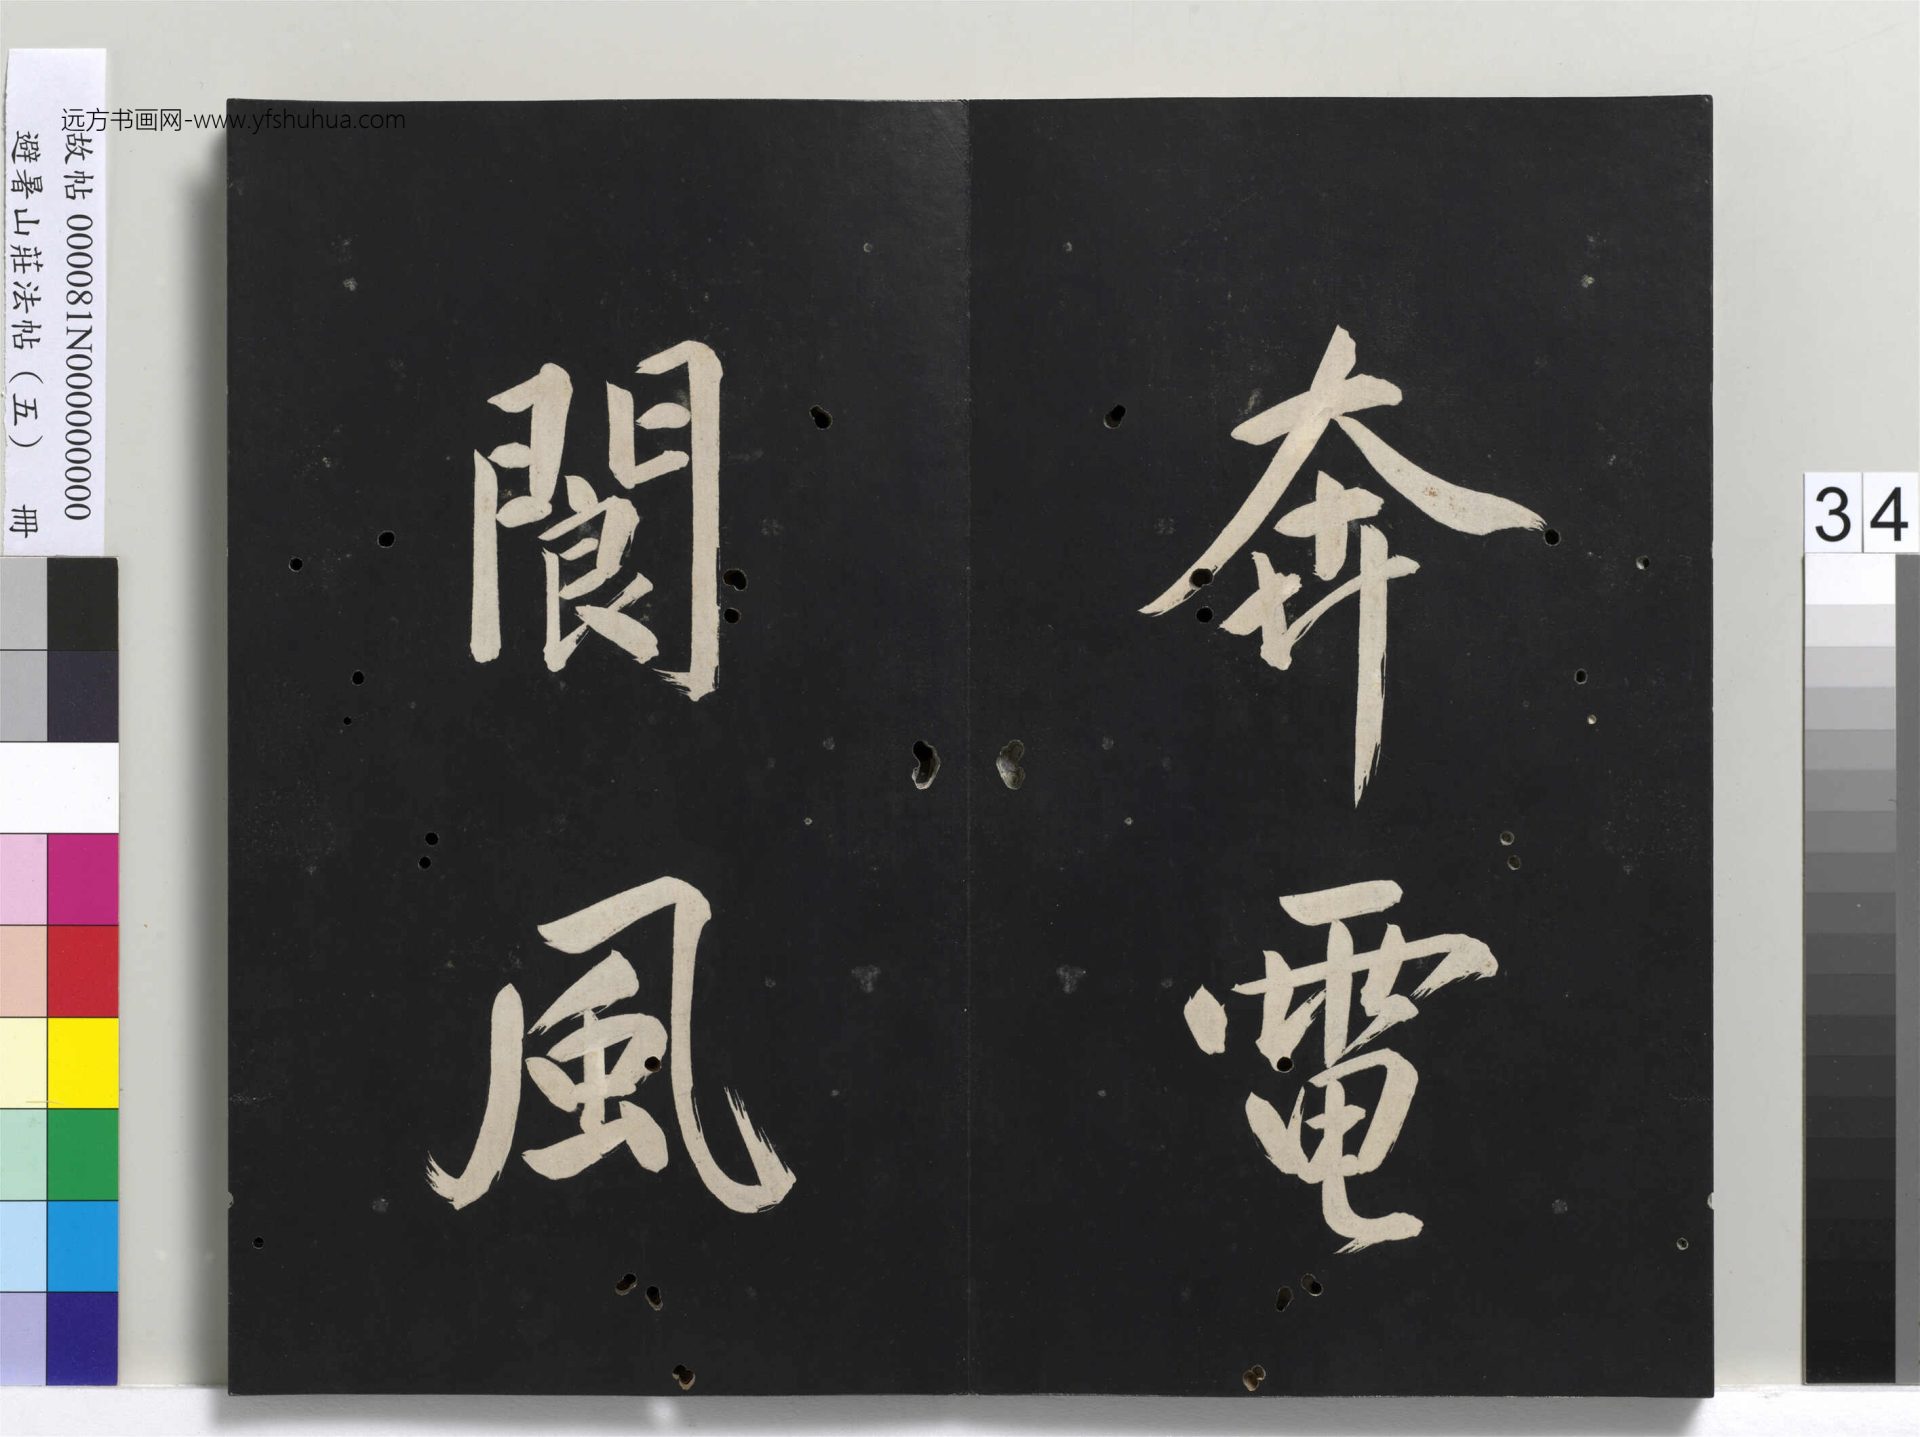 远方书画网-www.yfshuhua.com
故帖 000081N000000000
避暑山莊法帖（五） 冊
34
奔電
閬風